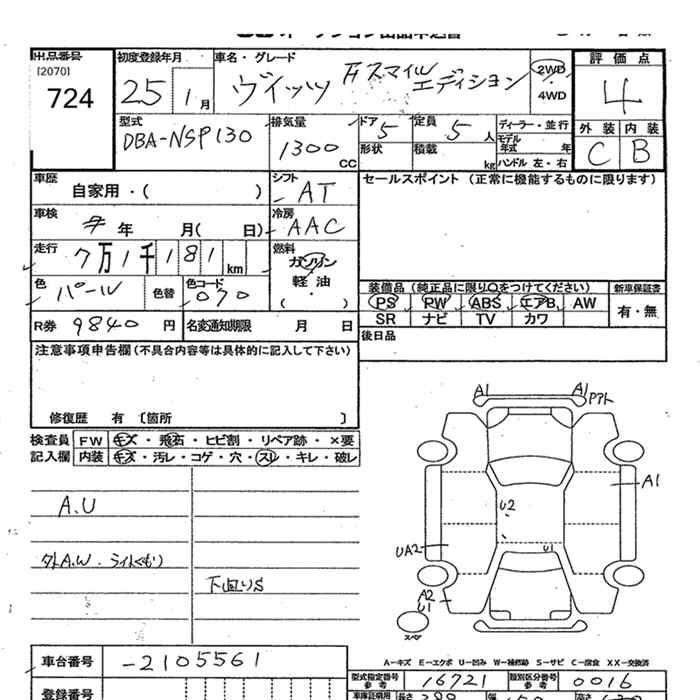 出品番号
[2070]
724
初度登録年月
25
1月
車名・グレード
ヴィッツ
F スマイル
エディション
2WD
・
4WD
評価点
4
外装 内装
C B
型式
DBA-NSP130
排気量
1300
CC
ドア 5
形状
定員 5 人
積載 kg
ディーラー・並行
モデル
年式 年
ハンドル 左・右
車歴
自家用・( )
シフト
AT
車検
年 月( 日)
冷房
AAC
走行
7万1千181
km
燃料
ガソリン
軽油
( ・ )
色
パール
色替
色コード
070
R券 9840 円
名変通知期限 月 日
セールスポイント (正常に機能するものに限ります)
装備品(純正品に限り○をつけてください)
新車保証書
PS PW ABS エアB AW
SR ナビ TV カワ
有・無
後日品
注意事項申告欄(不具合内容等は具体的に記入して下さい)
修復歴 有 〔箇所 〕
検査員
記入欄
FW キズ・飛石・ヒビ割・リペア跡・×要
内装 キズ・汚レ・コゲ・穴・スレ・キレ・破レ
A.U
外A.W.ライトくもり
下回りS
A1
A1
アト
A1
U2
U1
UA2
A2
U1
スペア
A−キズ E−エクボ U−凹み W−補修跡 S−サビ C−腐食 XX−交換済
車台番号
-2105561
型式指定番号
参考
16721
類別区分番号
参考
0016
登録番号
長さ
幅
高さ